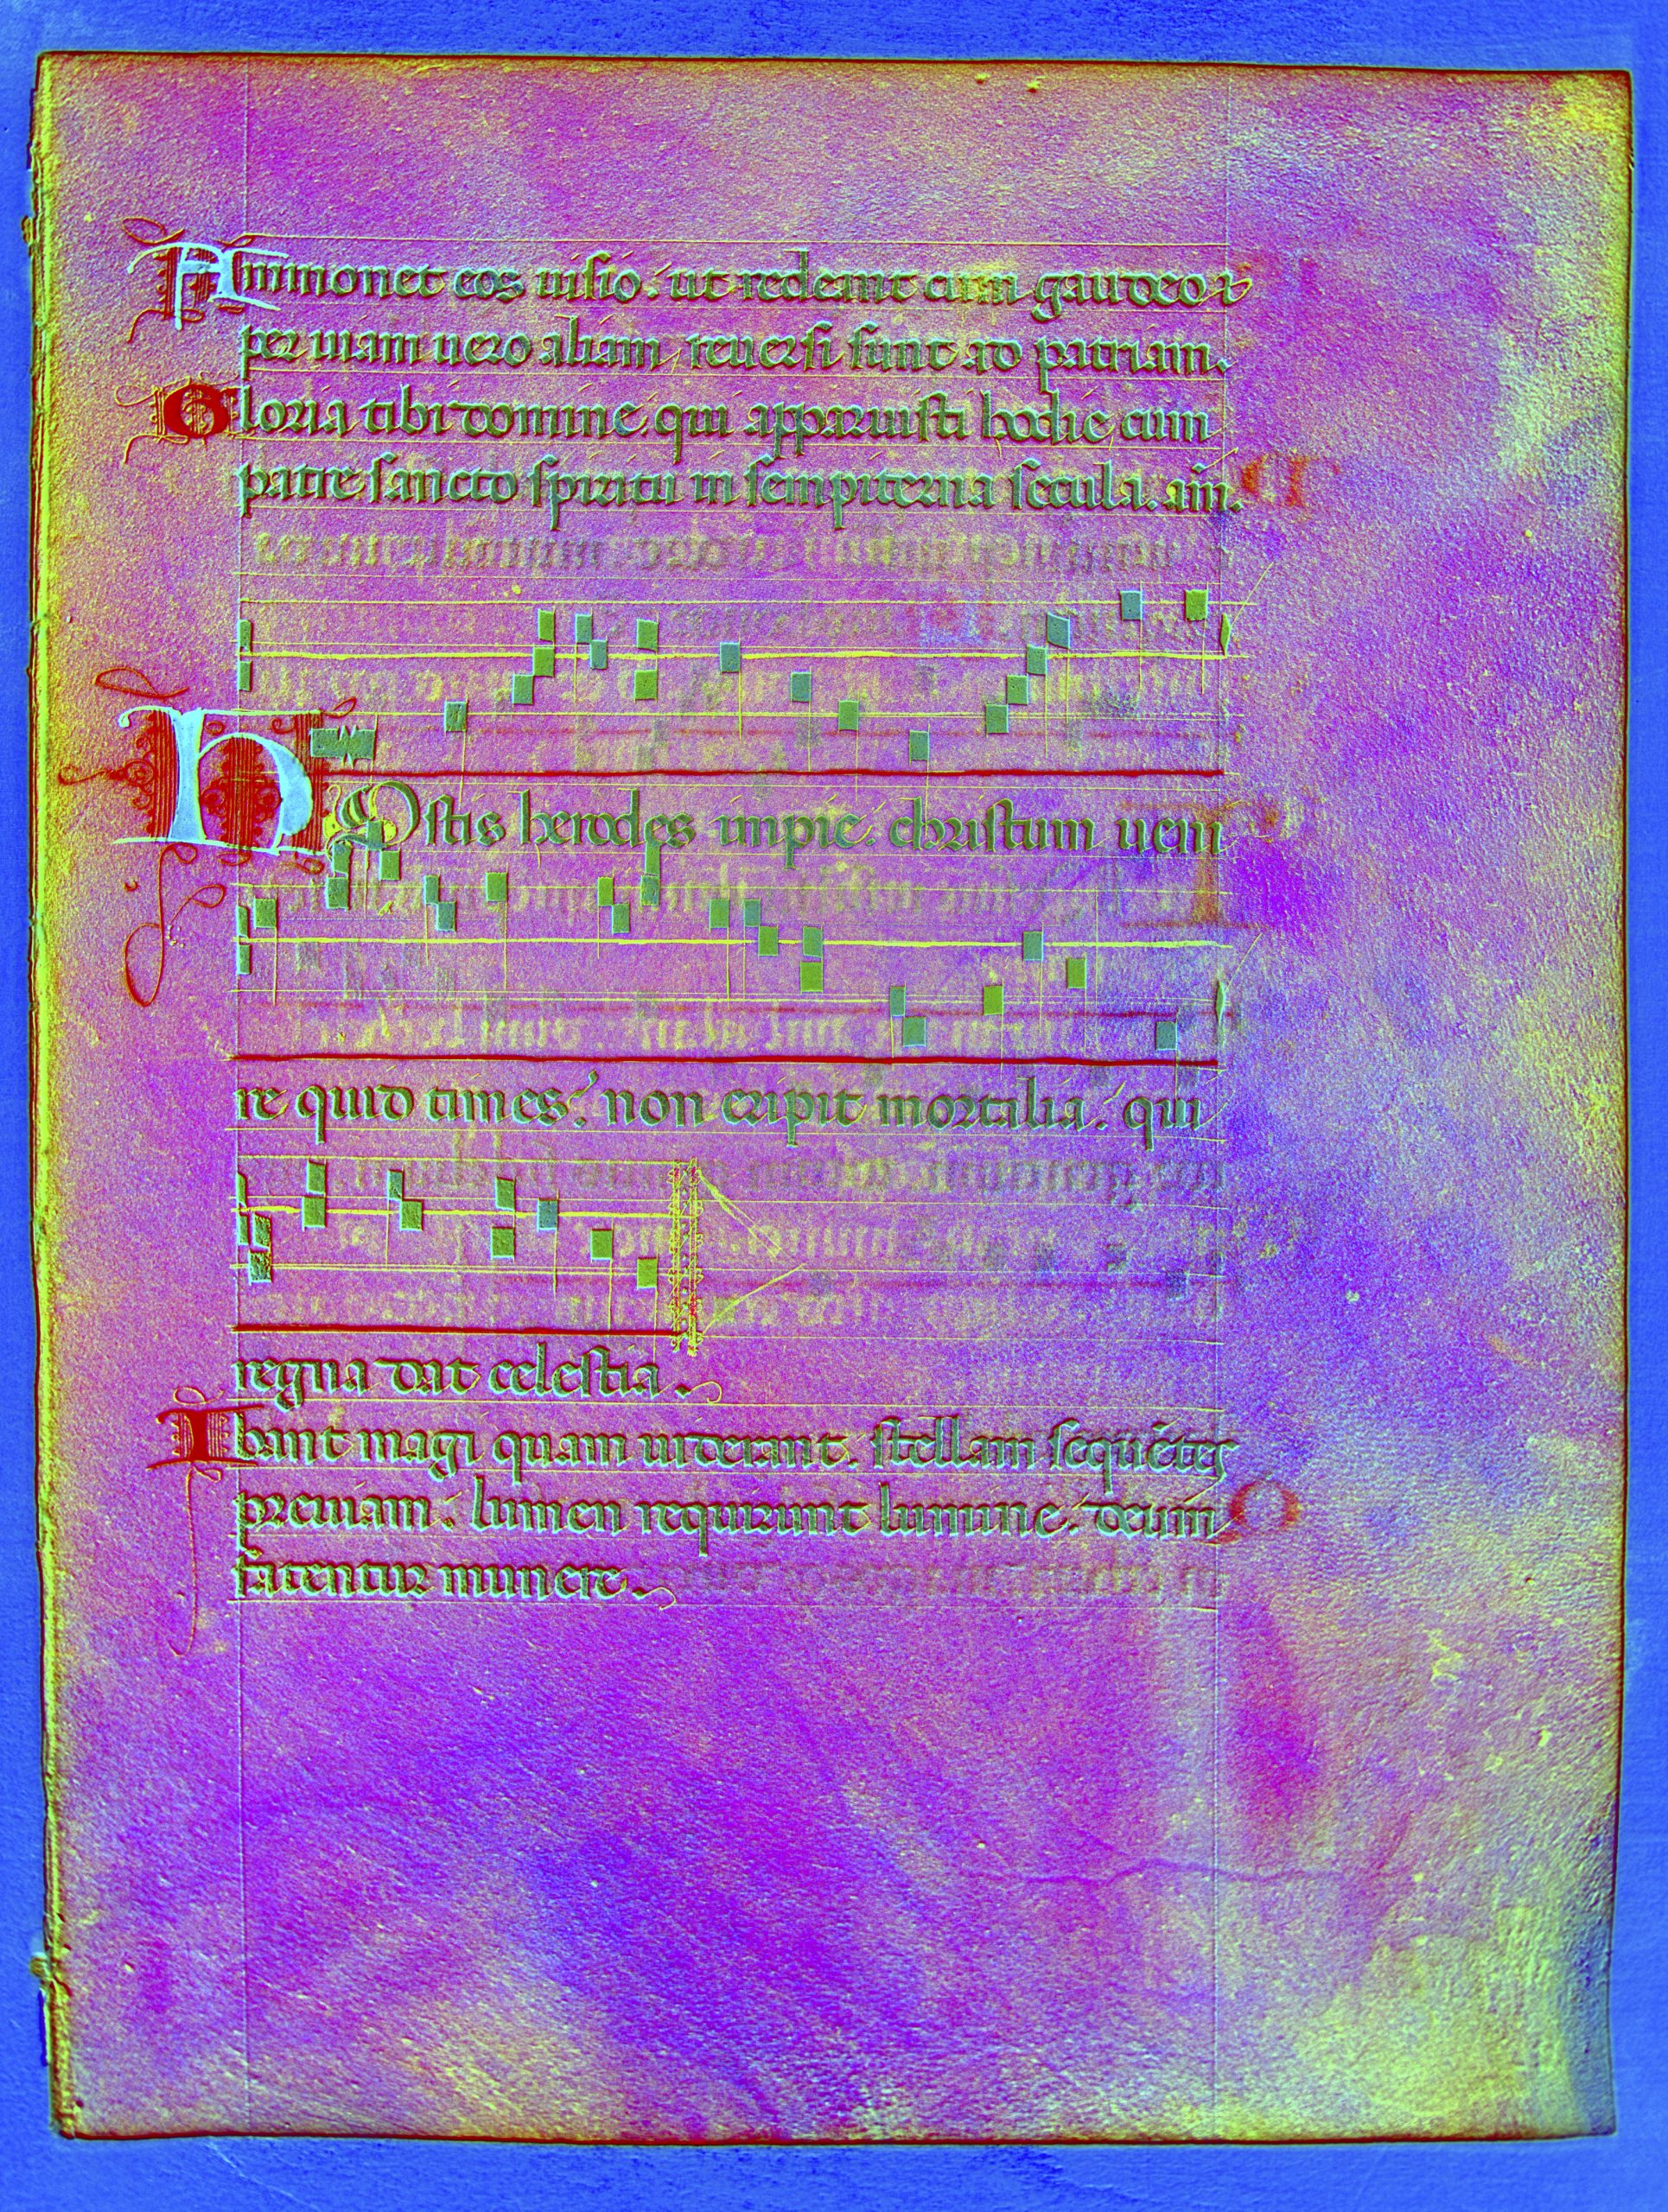 Ammonet eos uisio. ut redeant cum gaudeo &
per uiam uero aliam, reuersi sunt ad patriam.
Gloria tibi domine qui apparuisti hodie cum
patre sancto spiritu in sempiterna secula. am̄.
HOstis herodes impie. christum ueni
re quid times? non eripit mortalia. qui
regna dat celestia.
Ibant magi quam uiderant. stellam sequētes
preuiam. lumen requirunt lumine. deum
fatentur munere.